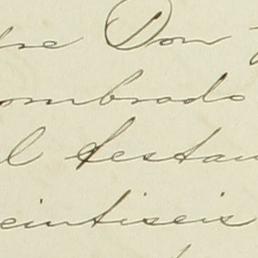 tre Don
ombrado
l testam
eintiseis